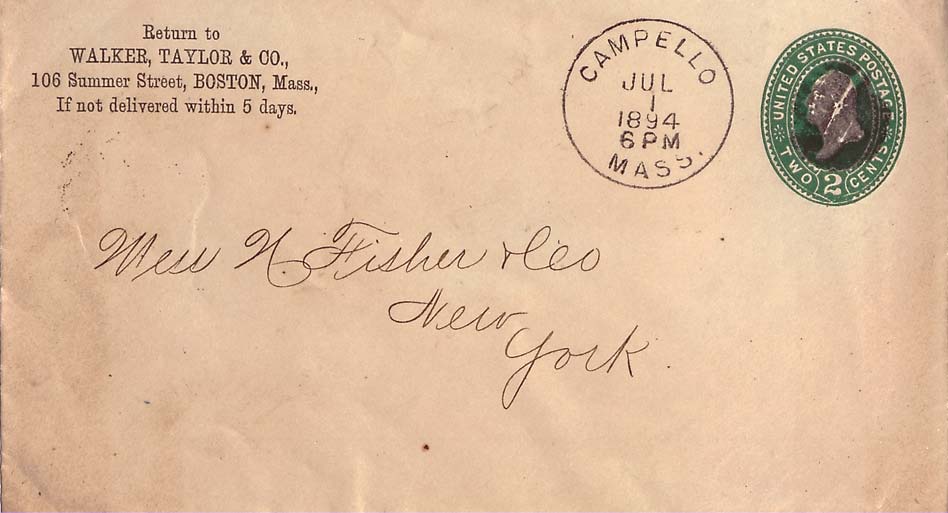 Return to
WALKER, TAYLOR & CO.,
106 Summer Street, BOSTON, Mass.,
If not delivered within 5 days.
CAMPELLO
JUL
1
1894
6 PM
MASS.
UNITED STATES POSTAGE
TWO 2 CENTS
N. Fisher & Co
New
York.